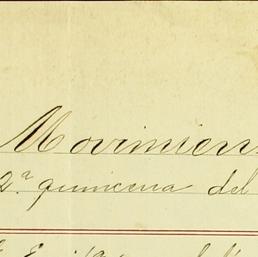 Movimien
2.ª quincena del